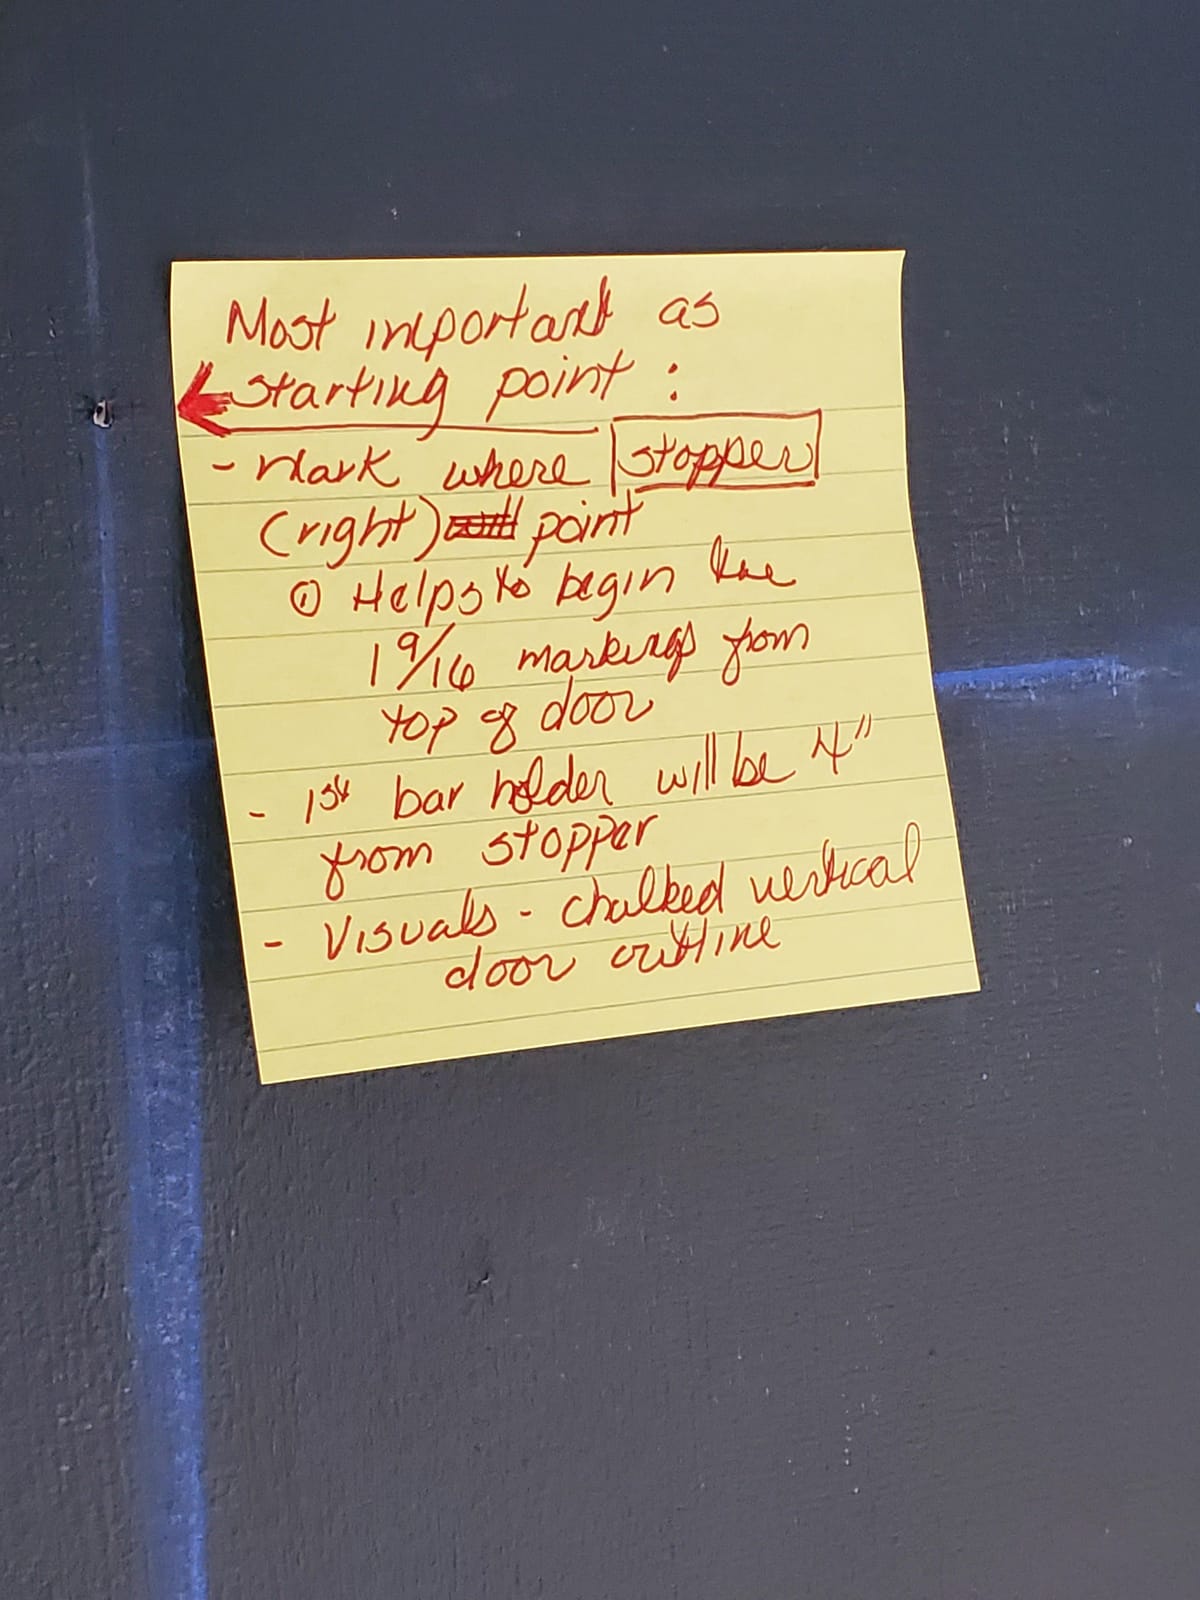 Most important as
starting point :
- Mark where stopper
(right) point
① Helps to begin the
1 9/16 markings from
top of door
- 1st bar holder will be 4"
from stopper
- Visuals - chalked vertical
door outline